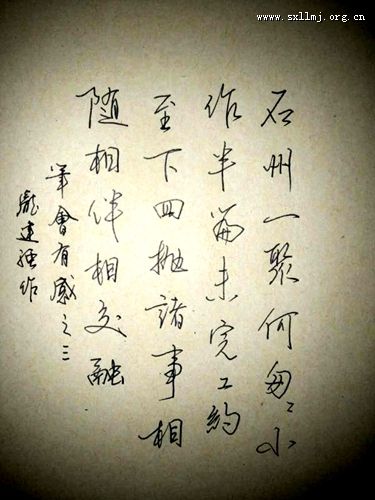 www.sxllmj.org.cn
石州一聚何匆匆小
作半篇未完工約
至下四抛諸事相
随相伴相交融
筆會有感之三
作